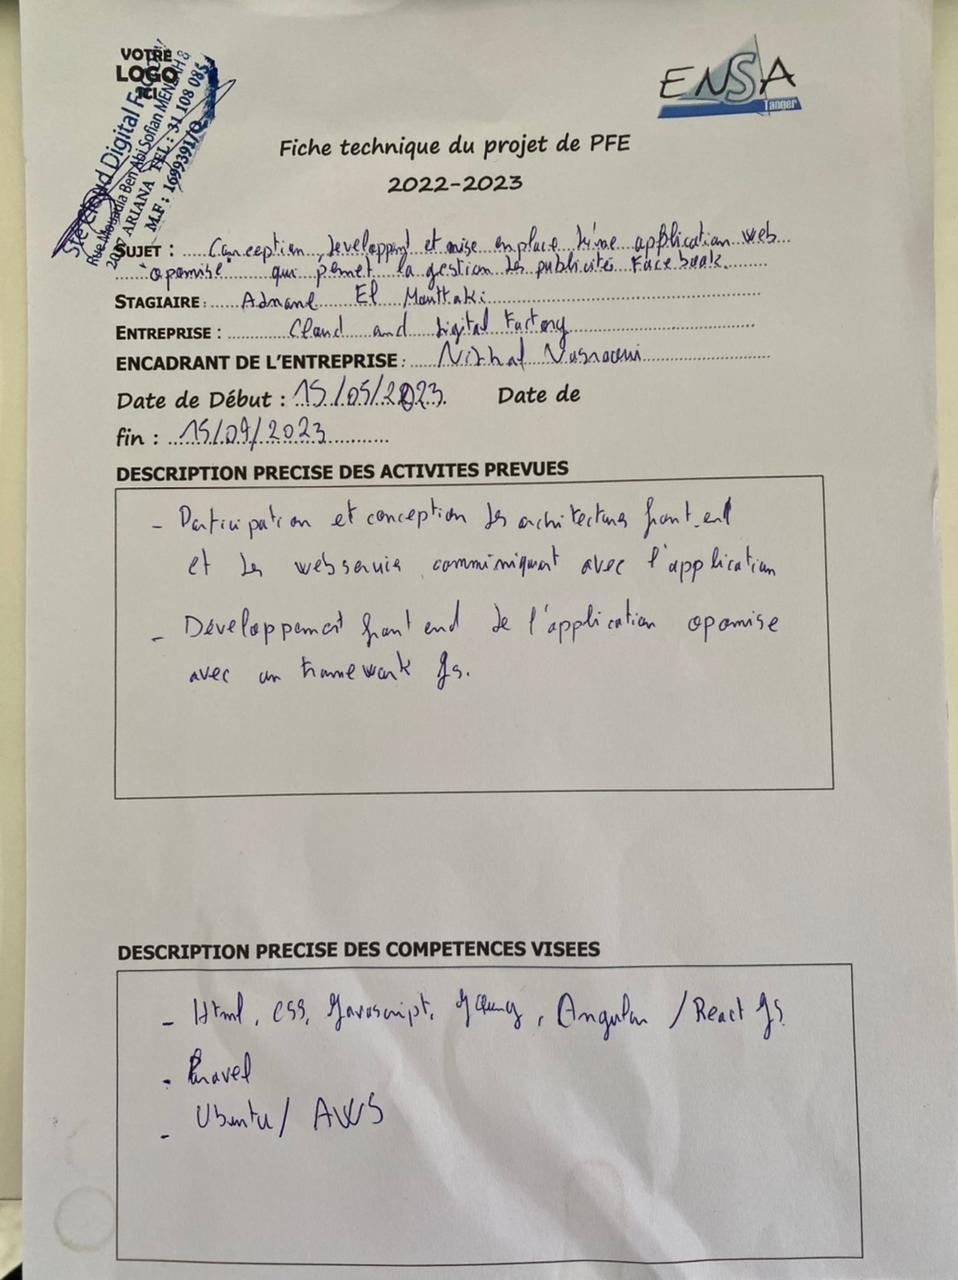 VOTRE
LOGO
ICI
Sté Cloud Digital
Rue Mouadia Ben Abi Sofian MENZAH 8
ARIANA TEL : 31 108 085
M.F : 1699391/Q
ENSA
Tanger
Fiche technique du projet de PFE
2022-2023
SUJET : Conception, Developpent et mise en place d'une application web
opomise qui pemet la gestion des publicités Facebook.
STAGIAIRE : Adnane El Mouttaki
ENTREPRISE : Cloud and Digital Factory
ENCADRANT DE L'ENTREPRISE :
Date de Début : 15/05/2023. Date de
fin : 15/09/2023
DESCRIPTION PRECISE DES ACTIVITES PREVUES
- Participation et conception des architecture front_end
et des webservis communiquant avec l'application
- Développement front end de l'application opomise
avec un framework Js.
DESCRIPTION PRECISE DES COMPETENCES VISEES
- Html, CSS, Javascript, JQuery, Angular / React Js
- Laravel
- Ubuntu / AWS